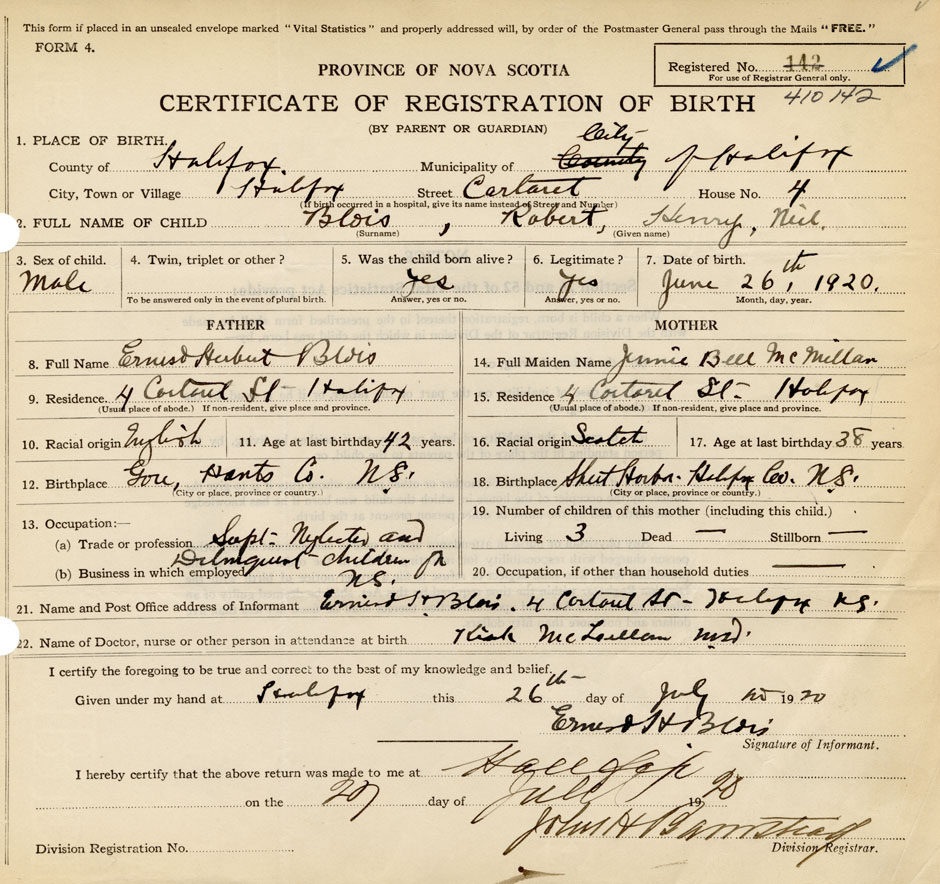 This form if placed in an unsealed envelope marked "Vital Statistics" and properly addressed will, by order of the Postmaster General pass through the Mails "FREE."
FORM 4.
Registered No. 142
For use of Registrar General only.
410142
PROVINCE OF NOVA SCOTIA
CERTIFICATE OF REGISTRATION OF BIRTH
(BY PARENT OR GUARDIAN)
1. PLACE OF BIRTH.
City
County of Halifax Municipality of County of Halifax
City, Town or Village Halifax Street Cartaret House No. 4
(If birth occurred in a hospital, give its name instead of Street and Number)
2. FULL NAME OF CHILD Blois, Robert, Henry, Niel.
(Surname) (Given name)
3. Sex of child. 4. Twin, triplet or other? 5. Was the child born alive? 6. Legitimate? 7. Date of birth.
Male yes yes June 26th, 1920.
To be answered only in the event of plural birth. Answer, yes or no. Answer, yes or no. Month, day, year.
FATHER MOTHER
8. Full Name Ernest Herbert Blois 14. Full Maiden Name Jennie Bell McMillan
9. Residence. 4 Cartaret St Halifax 15. Residence 4 Cartaret St- Halifax
(Usual place of abode.) If non-resident, give place and province. (Usual place of abode.) If non-resident, give place and province.
10. Racial origin English 11. Age at last birthday 42 years. 16. Racial origin Scotch 17. Age at last birthday 38 years
12. Birthplace Gore, Hants Co. N.S. 18. Birthplace Sheet Harbor- Halifax Co. N.S.
(City or place, province or country.) (City or place, province or country.)
13. Occupation:— 19. Number of children of this mother (including this child.)
(a) Trade or profession Supt- Neglected and Living 3 Dead — Stillborn —
Delinquent children for
(b) Business in which employed N.S. 20. Occupation, if other than household duties —
21. Name and Post Office address of Informant Ernest H Blois. 4 Cartaret St- Halifax N.S.
22. Name of Doctor, nurse or other person in attendance at birth Kirk McLellan M.D.
I certify the foregoing to be true and correct to the best of my knowledge and belief.
Given under my hand at Halifax this 26th day of July 1920
Ernest H Blois
Signature of Informant.
I hereby certify that the above return was made to me at Halifax
on the 27 day of July 1920
John H Barnstead
Division Registration No. Division Registrar.